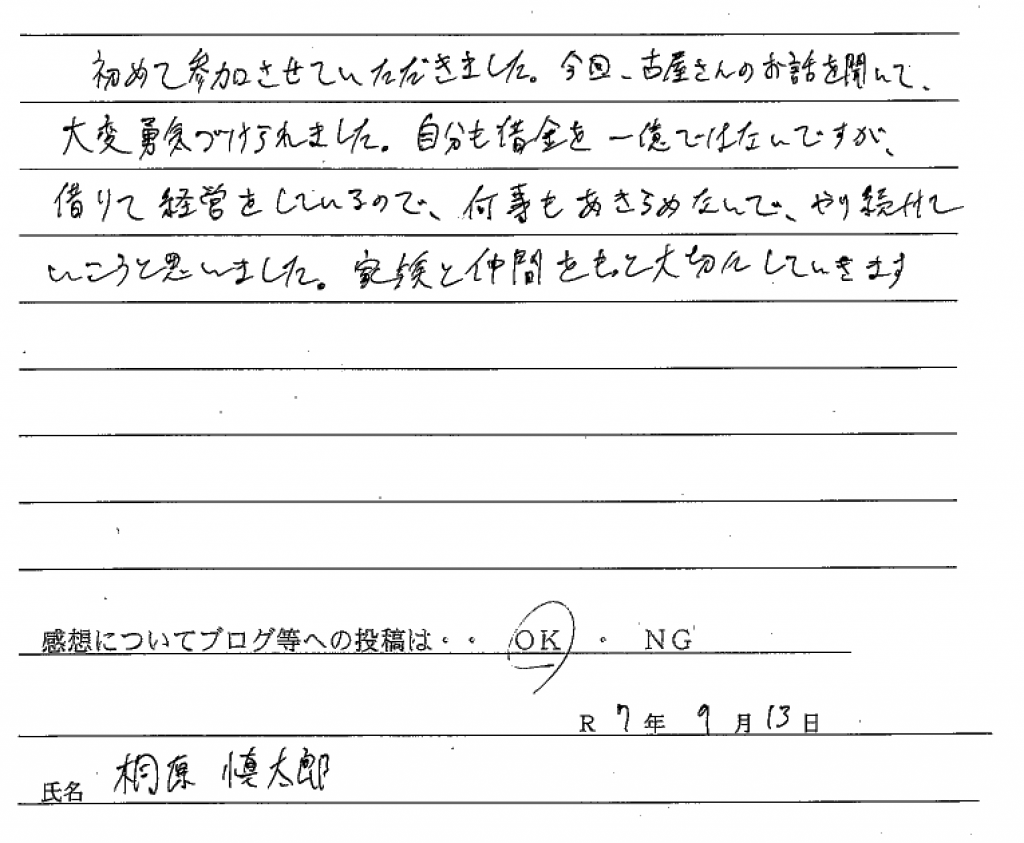 初めて参加させていただきました。今回、古屋さんのお話を聞いて、
大変勇気づけられました。自分も借金を一億ではないですが、
借りて経営をしているので、何事もあきらめないで、やり続けて
いこうと思いました。家族と仲間をもっと大切にしていきます
感想についてブログ等への投稿は・・ OK ・ NG
R 7年 9月13日
氏名 桐原 慎太郎